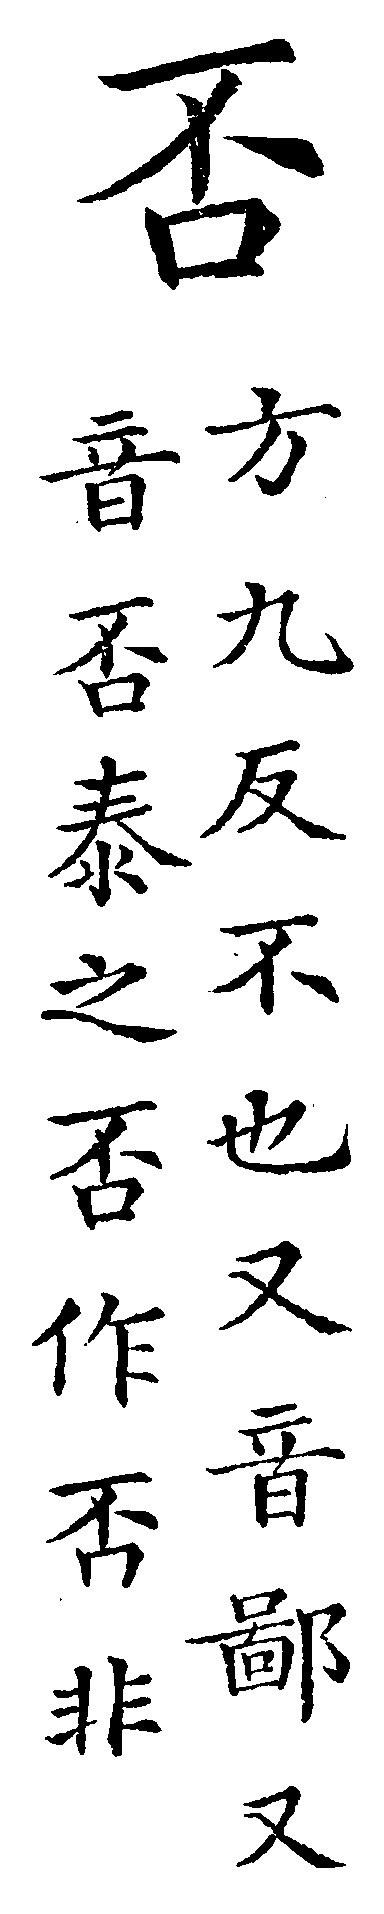 否
方九反不也又音鄙又
音否泰之否作否非